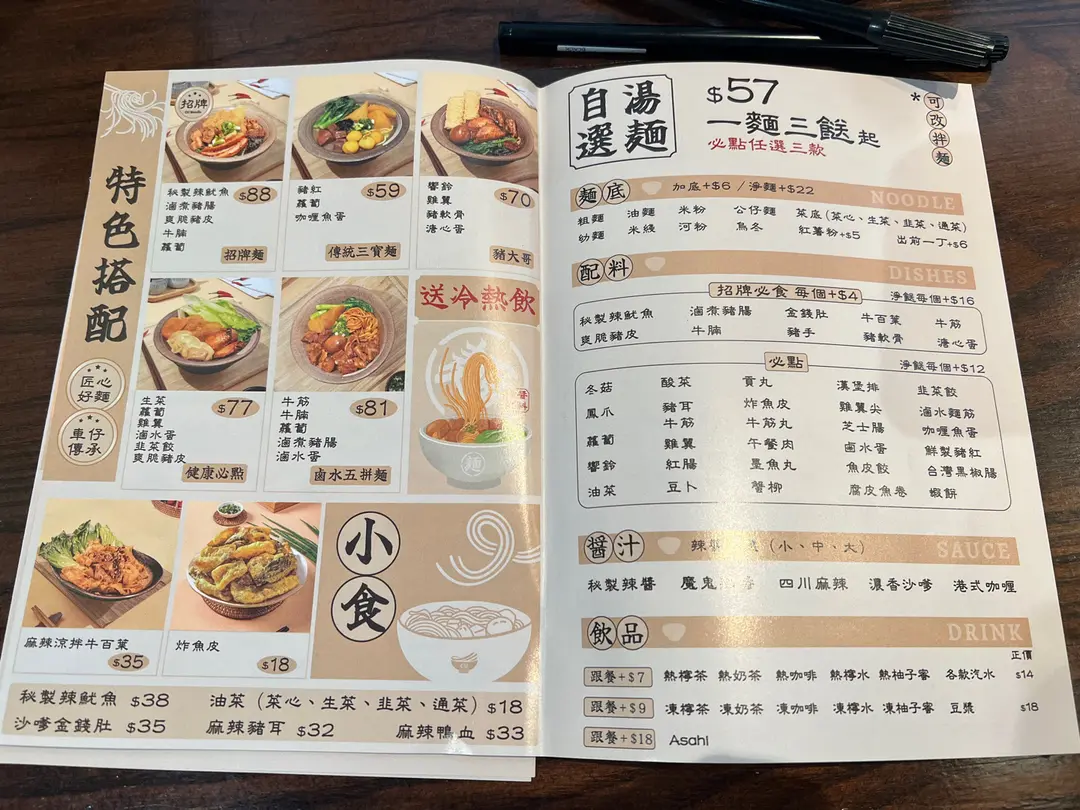 特色搭配
匠心
好麵
車仔
傳承
招牌
秘製辣魷魚
滷煮豬腸
爽脆豬皮
牛腩
蘿蔔
$88
招牌麵
豬紅
蘿蔔
咖喱魚蛋
$59
傳統三寶麵
響鈴
雞翼
豬軟骨
溏心蛋
$70
豬大哥
生菜
蘿蔔
雞翼
滷水蛋
韭菜餃
爽脆豬皮
$77
健康必點
牛筋
牛腩
蘿蔔
滷煮豬腸
滷水蛋
$81
鹵水五拼麵
送冷熱飲
麵
麻辣涼拌牛百葉
$35
炸魚皮
$18
小食
秘製辣魷魚 $38 油菜（菜心、生菜、韭菜、通菜）$18
沙嗲金錢肚 $35 麻辣豬耳 $32 麻辣鴨血 $33
自選湯麵
$57
一麵三餸起
必點任選三款
*可改拌麵
麵底 加底+$6 / 淨麵+$22 NOODLE
粗麵 油麵 米粉 公仔麵 菜底（菜心、生菜、韭菜、通菜）
幼麵 米綫 河粉 烏冬 紅薯粉+$5 出前一丁+$6
配料 DISHES
招牌必食 每個+$4 淨餸每個+$16
秘製辣魷魚 滷煮豬腸 金錢肚 牛百葉 牛筋
爽脆豬皮 牛腩 豬手 豬軟骨 溏心蛋
必點 淨餸每個+$12
冬菇 酸菜 貢丸 漢堡排 韭菜餃
鳳爪 豬耳 炸魚皮 雞翼尖 滷水麵筋
蘿蔔 牛筋 牛筋丸 芝士腸 咖喱魚蛋
響鈴 雞翼 午餐肉 鹵水蛋 鮮製豬紅
油菜 紅腸 墨魚丸 魚皮餃 台灣黑椒腸
豆卜 蟹柳 腐皮魚卷 蝦餅
醬汁 辣（小、中、大） SAUCE
秘製辣醬 魔鬼 四川麻辣 濃香沙嗲 港式咖喱
飲品 DRINK
正價
跟餐+$7 熱檸茶 熱奶茶 熱咖啡 熱檸水 熱柚子蜜 各款汽水 $14
跟餐+$9 凍檸茶 凍奶茶 凍咖啡 凍檸水 凍柚子蜜 豆漿 $18
跟餐+$18 Asahi